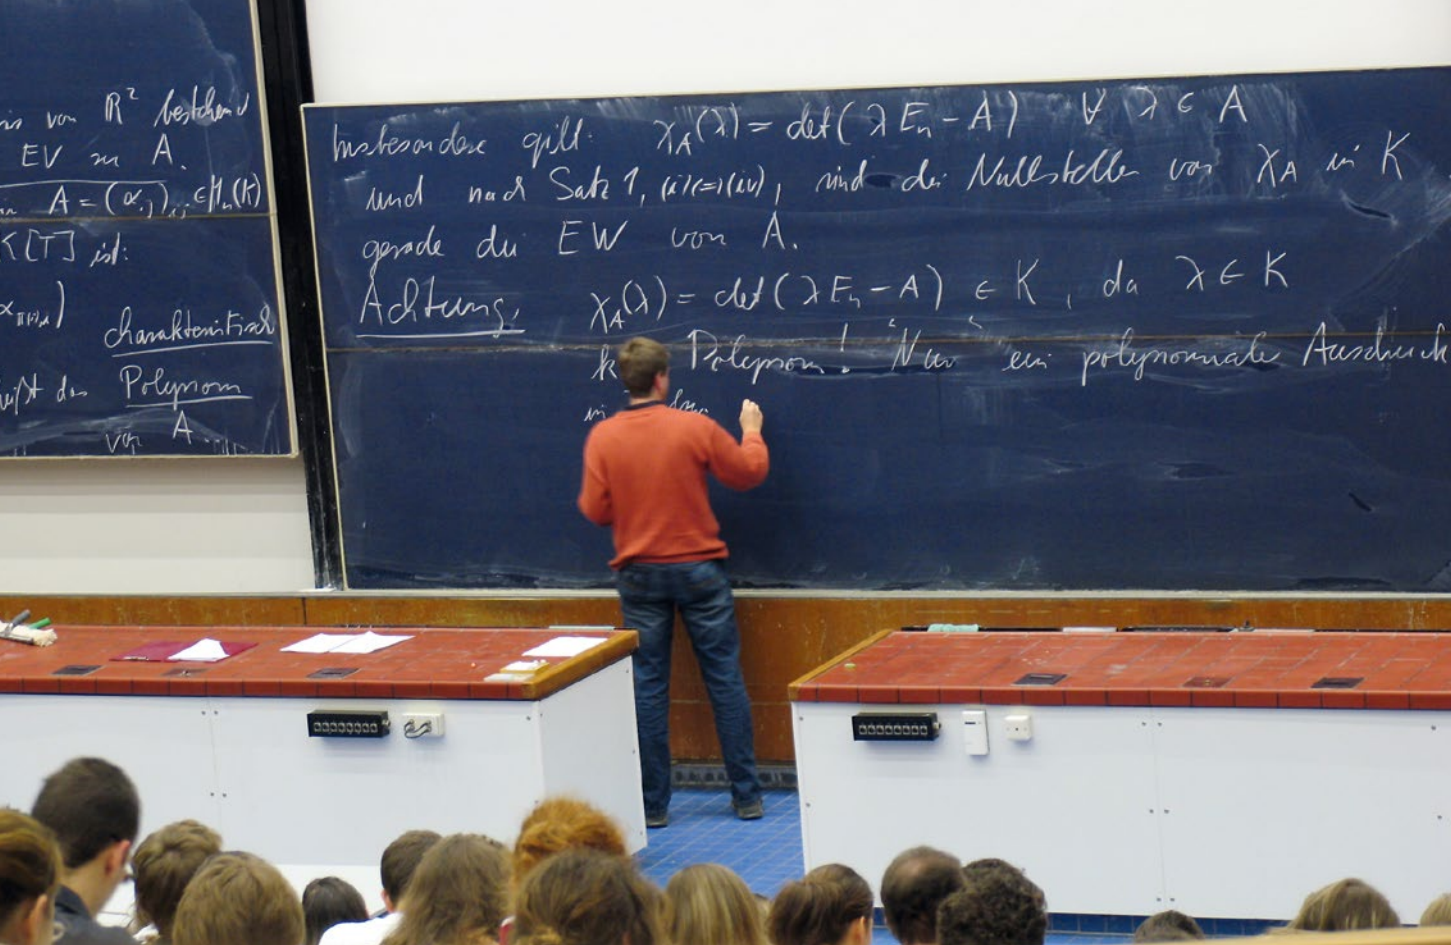 von ℝ² bestehend
EV zu A.
A = (αᵢⱼ)ᵢ,ⱼ ∈ Mₙ(K)
K[T] ist:
charakteristisch
das Polynom
von A
Insbesondere gilt: χ_A(λ) = det(λEₙ - A) ∀ λ ∈ A
und nach Satz 1, (i)<=>(iv), sind die Nullstellen von χ_A in K
gerade die EW von A.
Achtung, χ_A(λ) = det(λEₙ - A) ∈ K, da λ ∈ K
k Polynom! Nur ein polynomialer Ausdruck
in